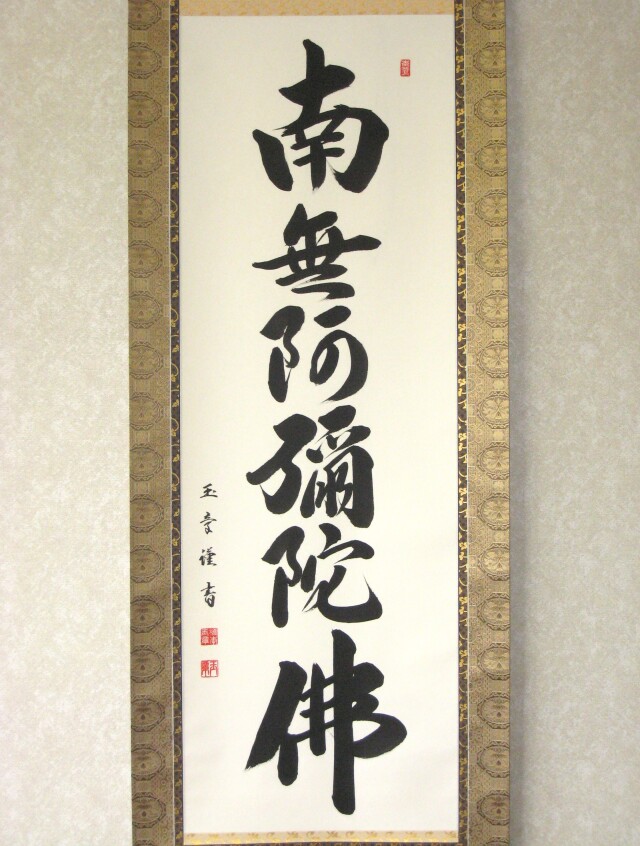 南無阿彌陀佛
玉章謹書